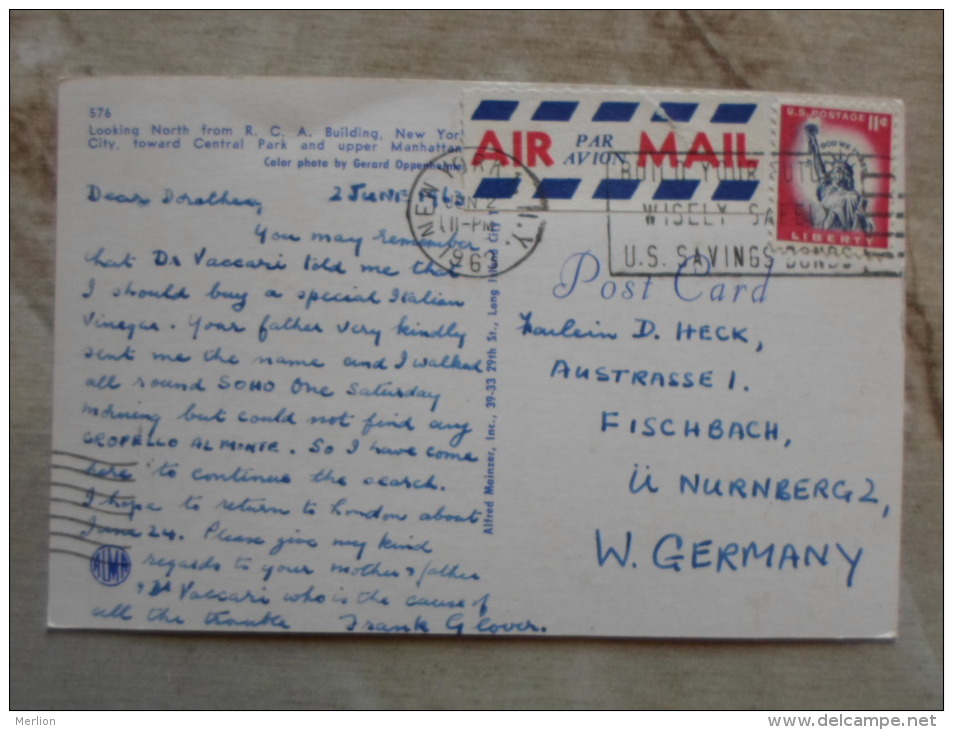 576
Looking North from R. C. A. Building, New Yor
City, toward Central Park and upper Manhattan
Color photo by Gerard Oppenheime
AIR PAR AVION MAIL
U.S. POSTAGE 11¢
IN GOD WE TRUST
LIBERTY
NEW YORK, N.Y.
JUN 2
11-PM
1963
BUILD YOUR FUTURE
WISELY SAFELY
U.S. SAVINGS BONDS
Post Card
Dear Dorothea, 2 JUNE 1963
You may remember
that Dr Vaccari told me that
I should buy a special Italian
Vinegar. Your father very kindly
sent me the name and I walked
all round SOHO One Saturday
morning but could not find any
CROPELLO AL MONTE. So I have come
here to continue the search.
I hope to return to London about
June 24. Please give my kind
regards to your mother & father
& Dr Vaccari who is the cause of
all the trouble Frank Glover.
ALMA
Alfred Mainzer, Inc., 39-33 29th St., Long Island City 1
Fraulein D. HECK,
AUSTRASSE 1.
FISCHBACH,
Ü NURNBERG 2,
W. GERMANY
Merlion
www.delcampe.net